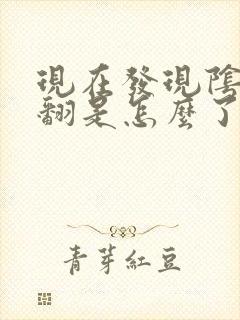 現在發現陰
翻是怎麼了
青芽紅豆